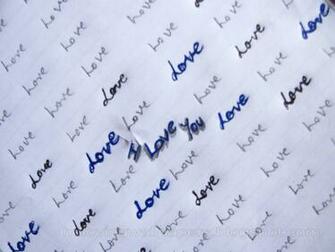 Love Love Love Love
Love Love Love Love
Love Love Love Love
Love Love Love Love
Love Love Love Love
Love I Love You Love
Love Love Love Love
Love Love Love Love
Love Love Love Love
Love Love Love